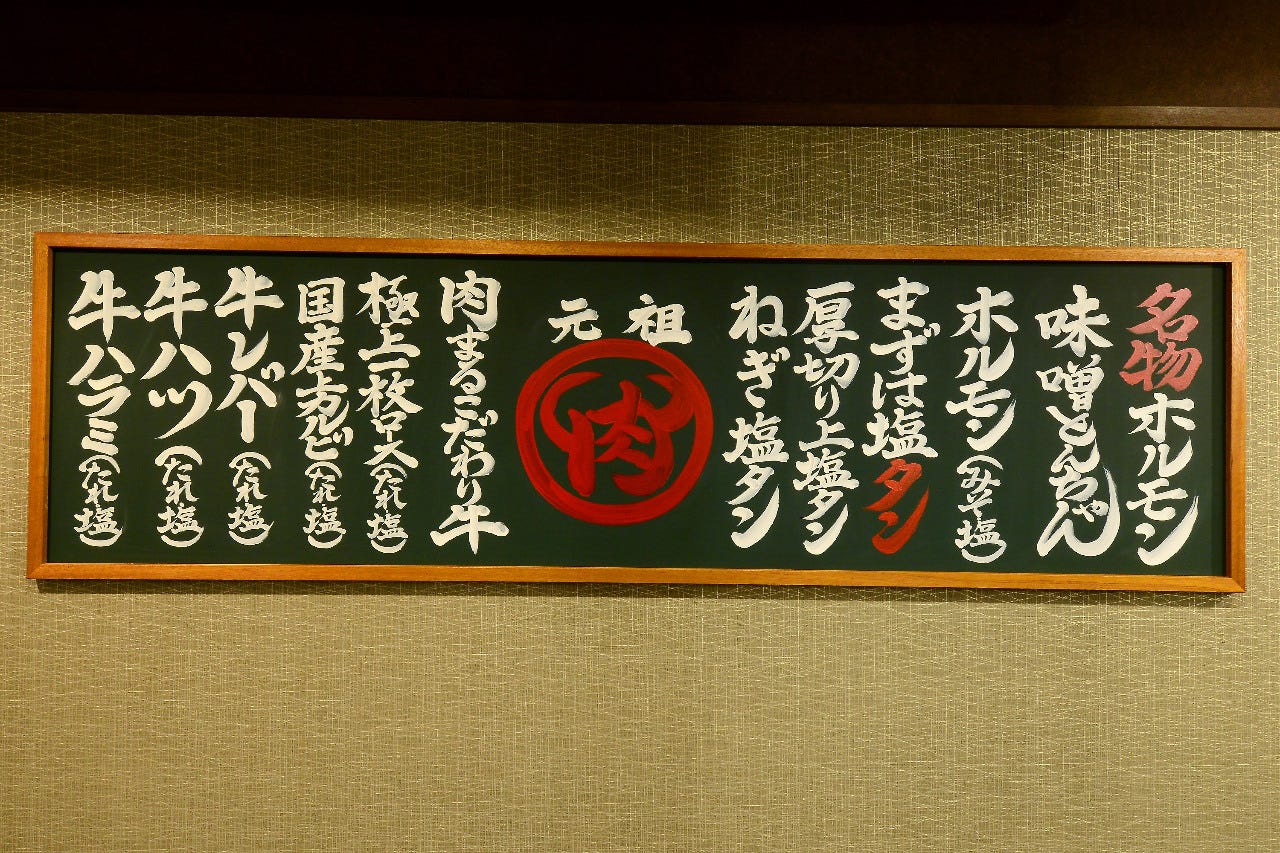 名物ホルモン
味噌とんちゃん
ホルモン(みそ塩)
まずは塩タン
厚切り上塩タン
ねぎ塩タン
元祖
肉
肉まるこだわり牛
極上一枚ロース(たれ塩)
国産上カルビ(たれ・塩)
牛レバー(たれ塩)
牛ハツ(たれ塩)
牛ハラミ(たれ塩)